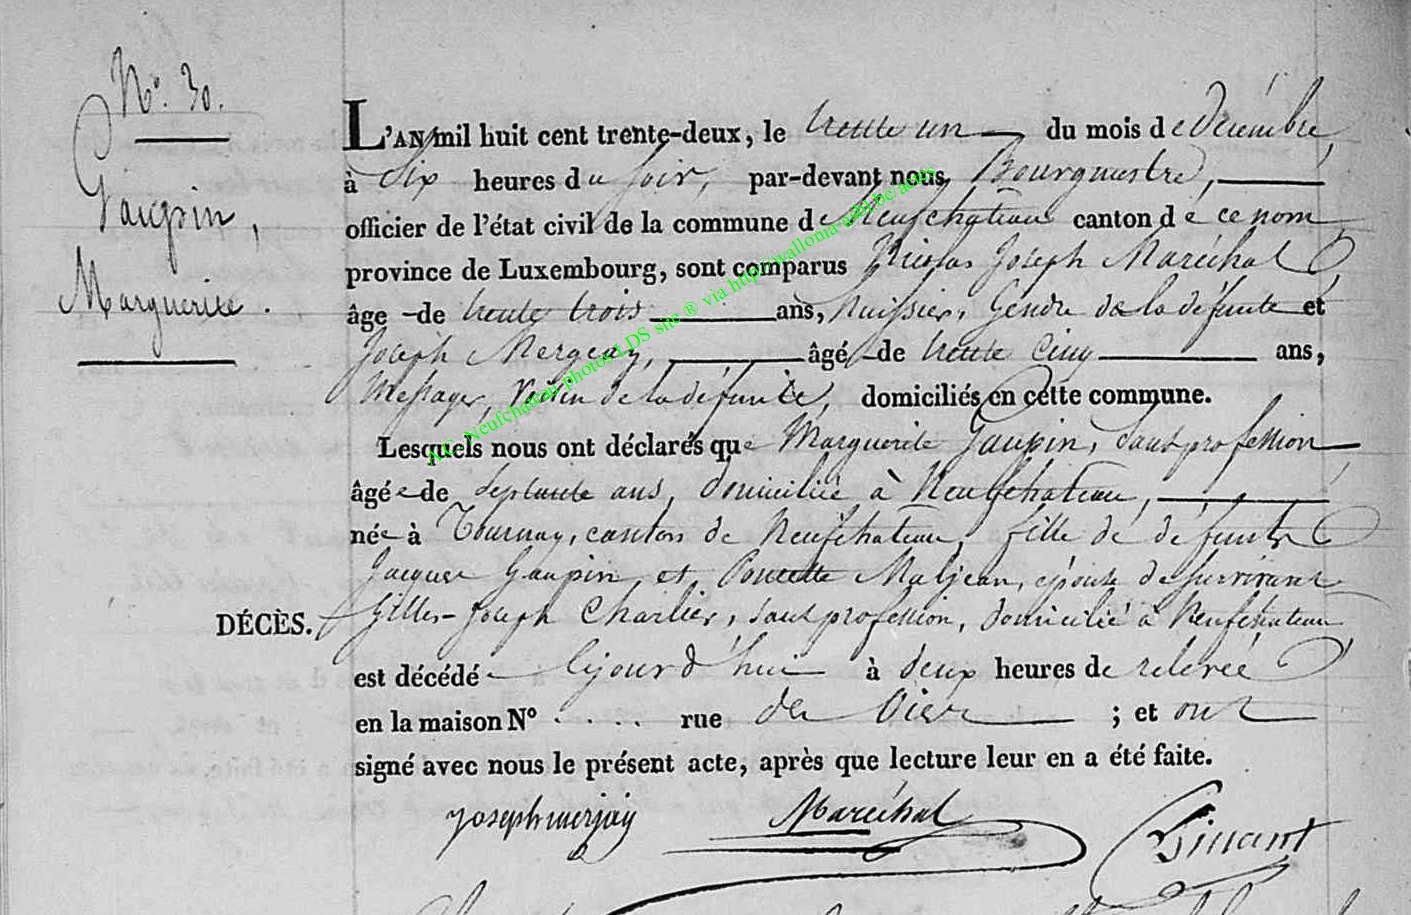 N° 30.
Gaupin,
Marguerite.
L'AN mil huit cent trente-deux, le trente un du mois de Décembre,
à six heures du soir, par-devant nous Bourgmestre,
officier de l'état civil de la commune de Neufchateau canton de ce nom,
province de Luxembourg, sont comparus Nicolas Joseph Maréchal
âgé de trente trois ans, huissier, Gendre de la défunte et
Joseph Mergeay, âgé de trente cinq ans,
Messager, Voisin de la défunte, domiciliés en cette commune.
Lesquels nous ont déclarés que Marguerite Gaupin, sans profession
âgée de septante ans, domiciliée à Neufchateau,
née à Tournay, canton de Neufchateau, fille de défunts
Jacques Gaupin, et Poncette Maljean, épouse de survivant
DÉCÈS. Gilles-Joseph Charlier, sans profession, domicilié à Neufchateau
est décédée cejourd'hui à deux heures de relevée
en la maison N° . . . . rue ; et ont
signé avec nous le présent acte, après que lecture leur en a été faite.
Joseph merjay Maréchal Dinant
A.C. Neufchateau photos LDS site ® via http://wallonia-asbl.be/actes